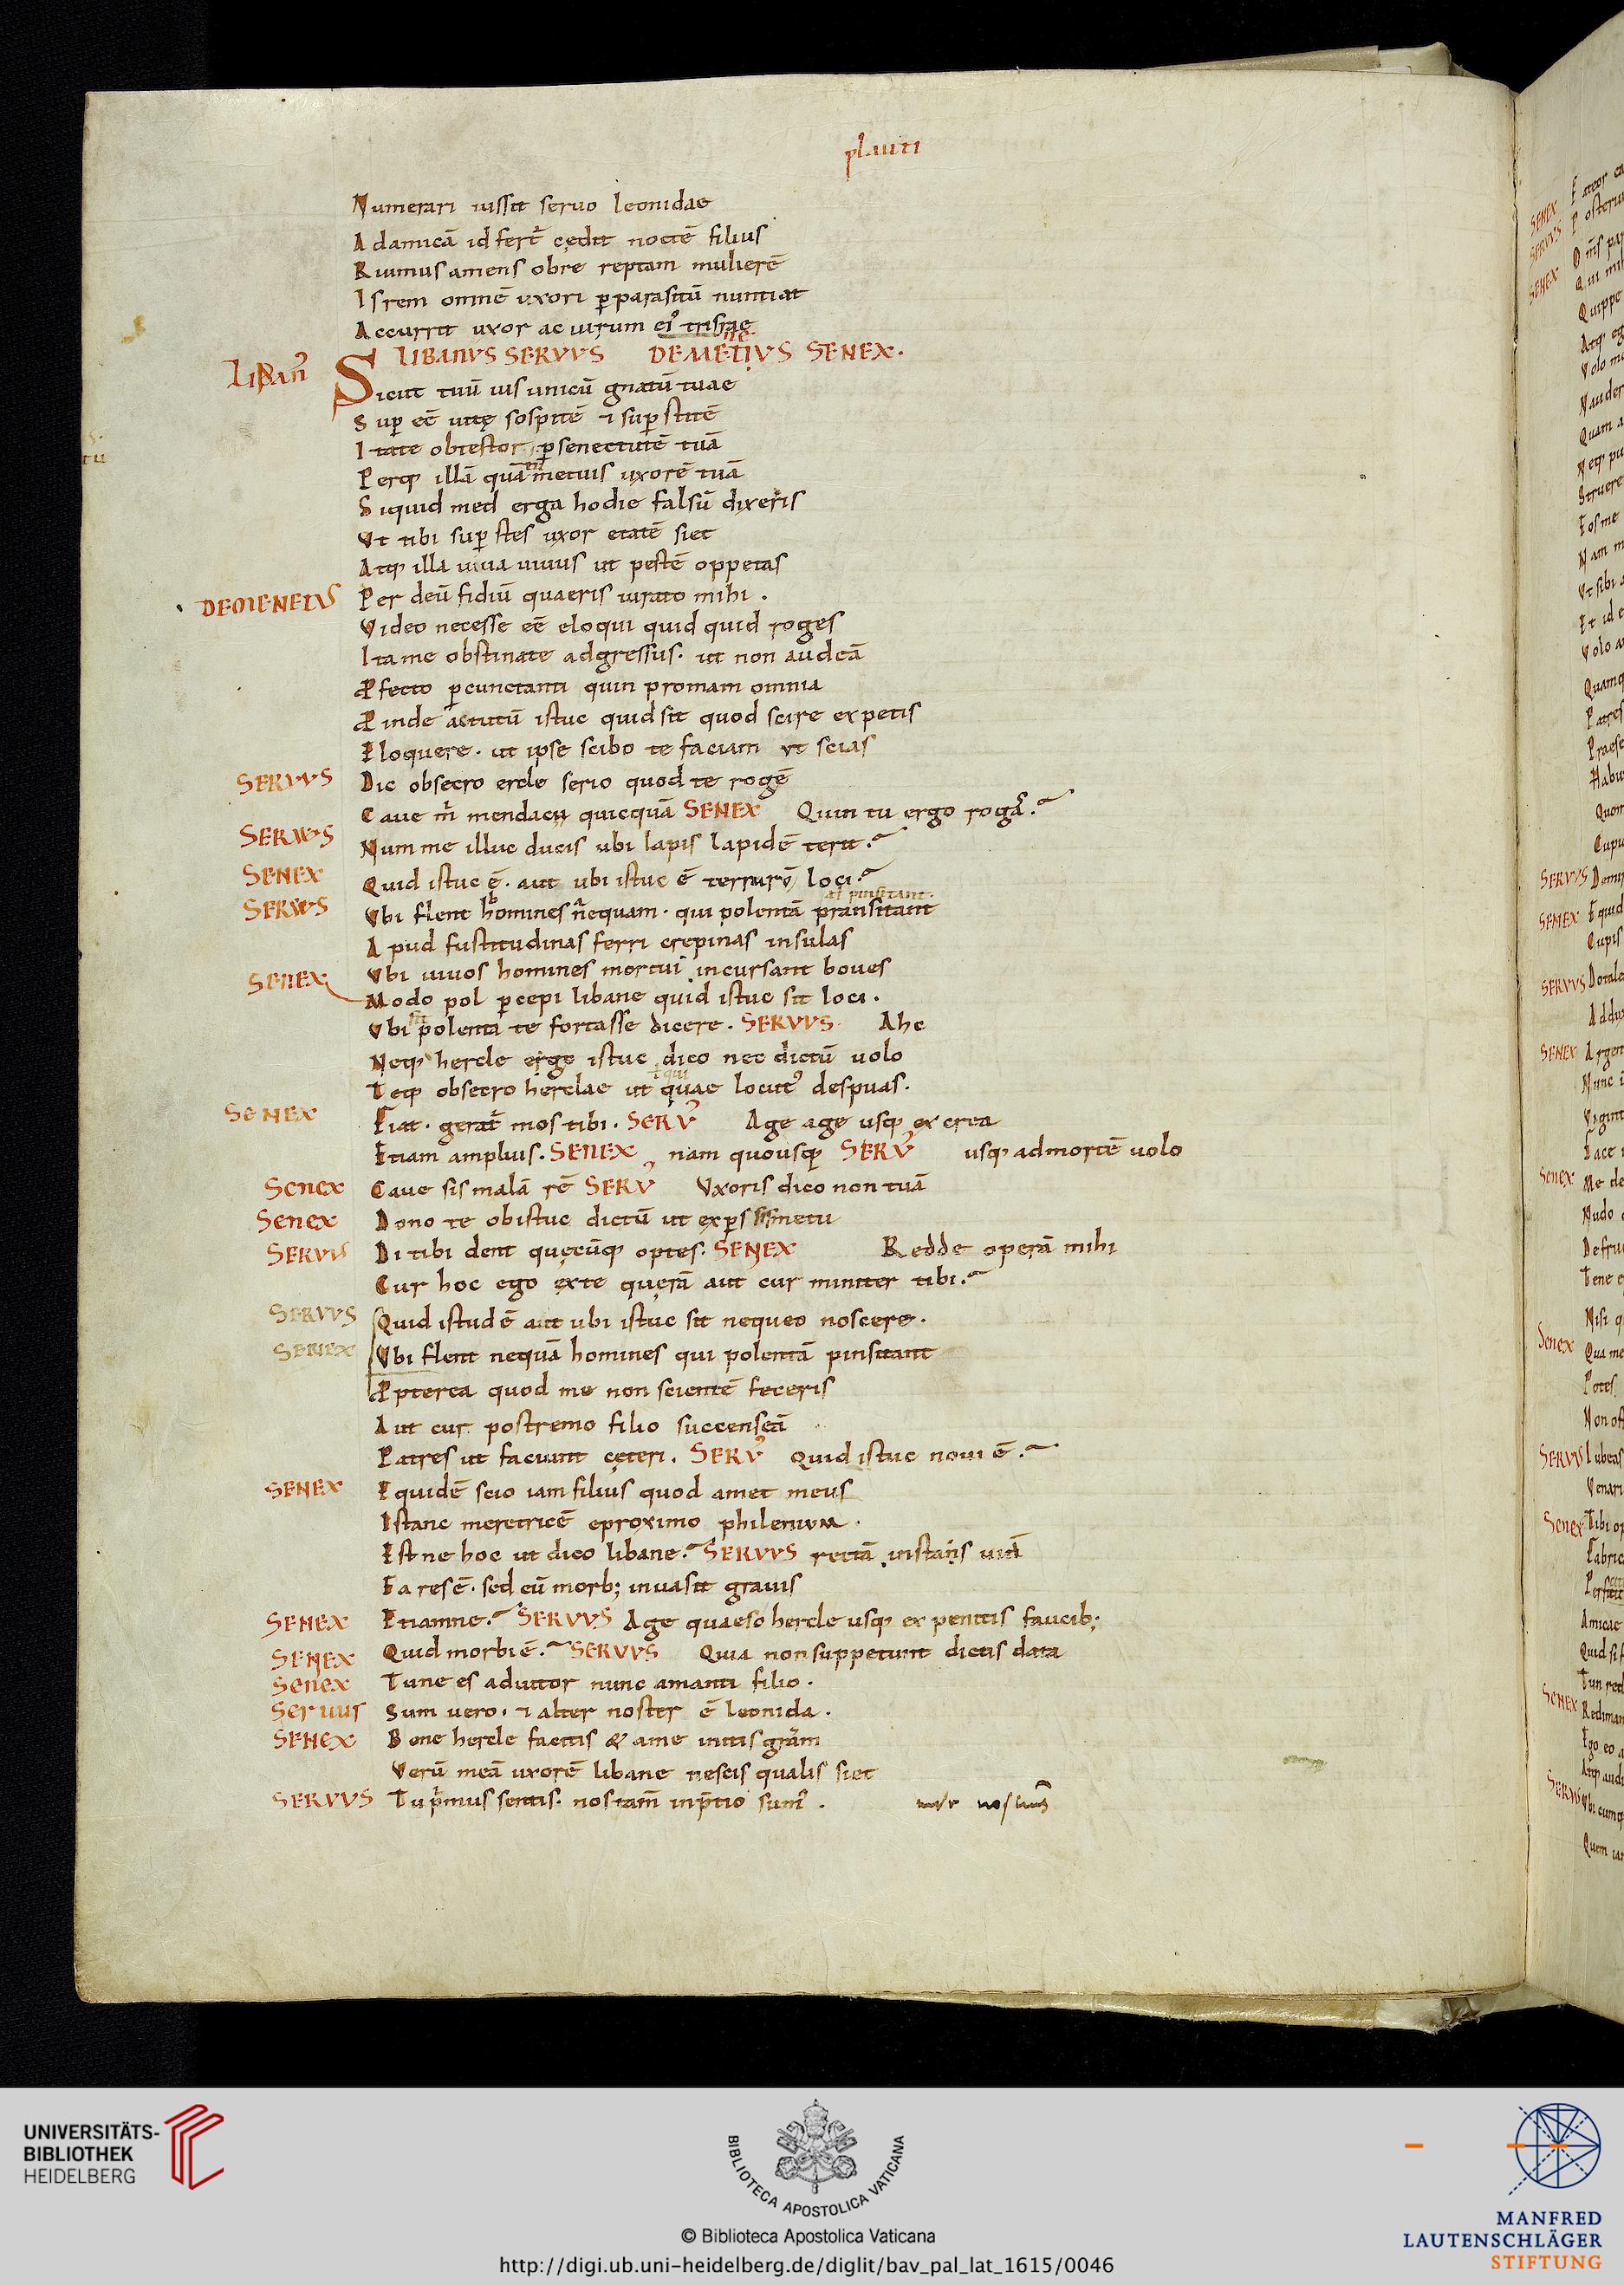 plauti
Numerari iussit seruo leonidae
Adamicā id fert̄ cedit noctē filius
Riuinus amens obre reptam mulierē
Is rem omnē uxori pparasitū nuntiat
Accurrit uxor ac uirum
LIBANVS SERVVS SENEX.
Sicut tuū uis unicū gnatū tuae
Sup eē uitę sospitē ⁊ supstitē
Itate obtestor psenectutē tuā
Perq; illā quā metuis uxorē tuā
Siquid med erga hodie falsū dixeris
Vt tibi supstes uxor etatē siet
Atq; illa uiua uiuus ut pestē oppetas
DEMENETVS Per deū fidiū quaeris iurato mihi .
Video necesse eē eloqui quid quid roges
Itame obstinate adgressus. ut non audeā
Pfecto pcunctanti quin promam omnia
Pinde actutū istuc quid sit quod scire expetis
Eloquere. ut ipse scibo te faciam ut scias
SERVVS Dic obsecro ercle serio quod te rogē
Caue m̄ mendacii quicquā SENEX Quin tu ergo rogas?
SERVVS Num me illuc ducis ubi lapis lapidē terit?
SENEX Quid istuc ē. aut ubi istuc ē terrarū loci?
al pinsitant
SERVVS Vbi flent homines nequam. qui polentā pransitant
Apud fustitudinas ferri crepinas insulas
Vbi uiuos homines mortui incursant boues
SENEX Modo pol pcepi libane quid istuc sit loci.
Vbi fit polenta te fortasse dicere. SERVVS Ahc
Neq; hercle ergo istuc dico nec dictū uolo
Teq; obsecro herclae ut quae locut' despuas.
SENEX Fiat. gerat̄ mos tibi. SERV' Age age usq; excrea
Etiam amplius. SENEX nam quousq; SERV' usq; admortē uolo
Senex Caue sis malā rē SERV' Vxoris dico non tuā
Senex Dono te obistuc dictū ut expers sis metu
SERVVS Di tibi dent quęcūq; optes. SENEX Redde operā mihi
Cur hoc ego exte querā aut cur miniter tibi?
SERVVS Quid istud ē aut ubi istuc sit nequeo noscere.
SENEX Vbi flent nequā homines qui polentā pinsitant
Ppterea quod me non scientē feceris
Aut cur postremo filio succenseā
Patres ut faciunt cęteri. SERV' quid istuc noui ē?
SENEX Equidē scio iam filius quod amet meus
Istanc meretricē eproximo philenium.
Estne hoc ut dico libane? SERVVS rectā instas uiā
Ea res ē. sed eū morb; inuasit grauis
SENEX Etiamne? SERVVS Age quaeso hercle usq; ex penitis faucib;
SENEX Quid morbi ē? SERVVS Quia non suppetunt dictis data
Senex Tune es adiutor nunc amanti filio.
Seruus Sum uero. ⁊ alter noster ē leonida.
SENEX Bone hercle factis & ame initis grām
Verū meā uxorē libane nescis qualis siet
SERVVS Tu prmus sentis. nos tam̄ inprtio sum'.
UNIVERSITÄTS-
BIBLIOTHEK
HEIDELBERG
BIBLIOTECA APOSTOLICA VATICANA
© Biblioteca Apostolica Vaticana
http://digi.ub.uni-heidelberg.de/diglit/bav_pal_lat_1615/0046
MANFRED
LAUTENSCHLÄGER
STIFTUNG